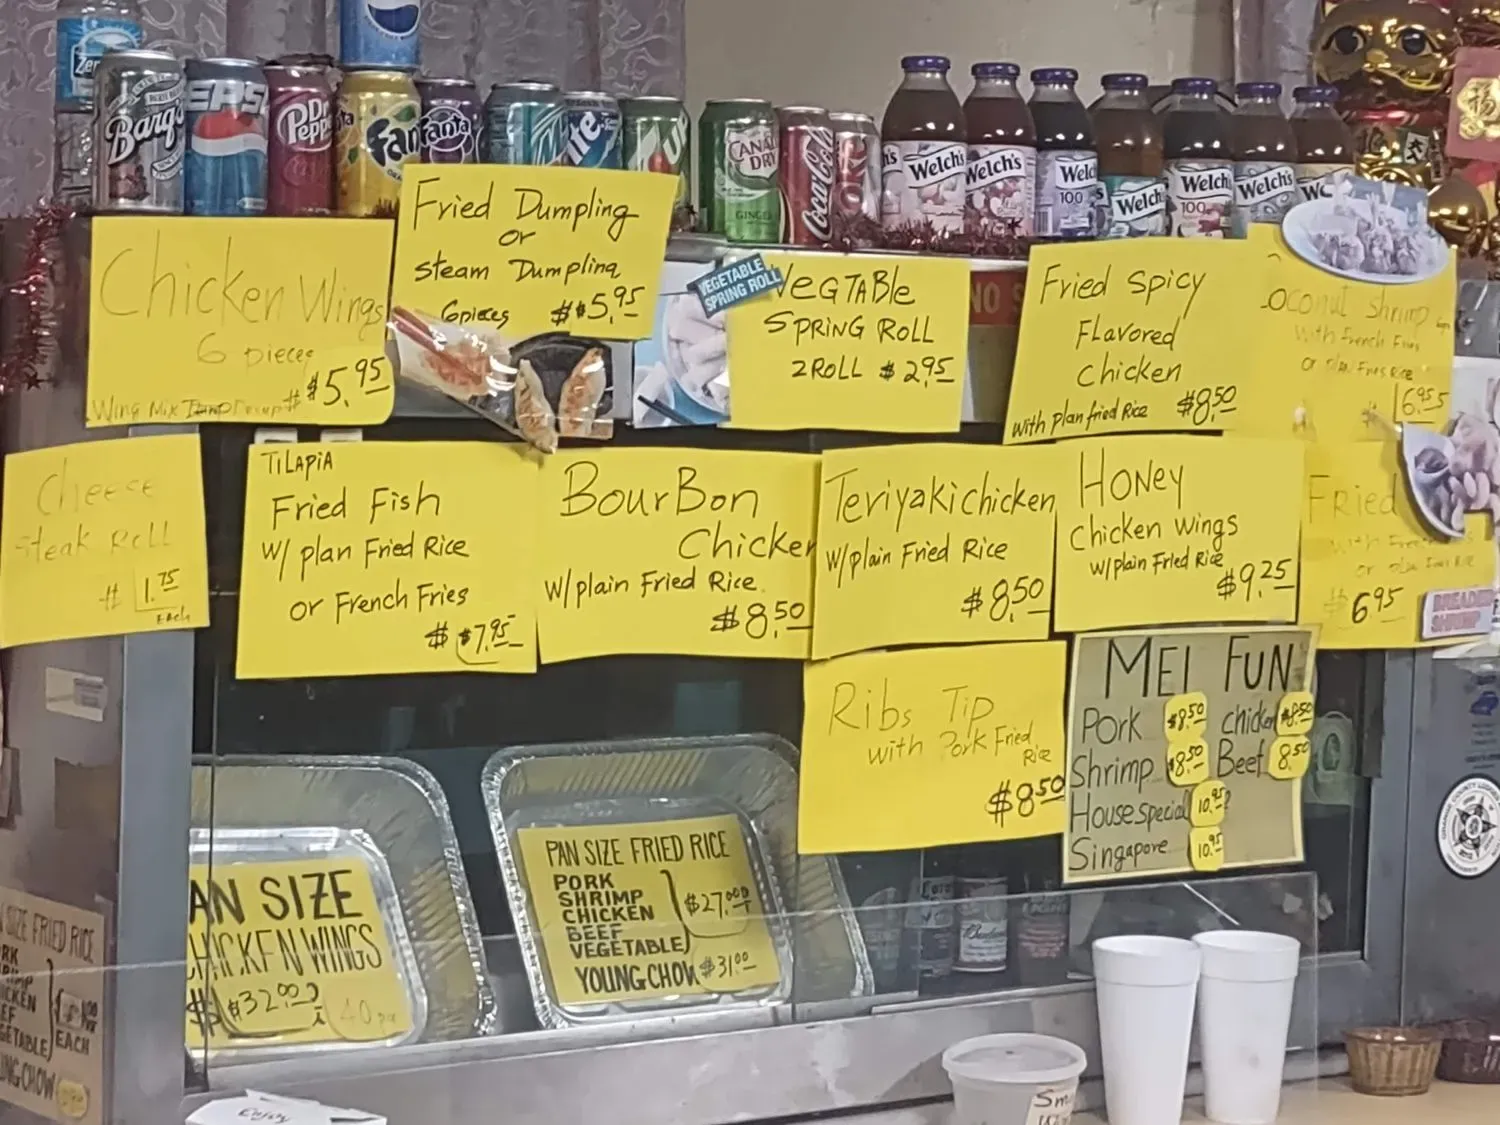 Barq's
PEPSI
Dr Pepper
Fanta
Fanta
CANADA
DRY
GINGER
Coca-Cola
Welch's
Welch's
Welch's
100
Welch's
Welch's
100
Welch's
福
Chicken Wings
6 pieces
$5.95
Fried Dumpling
or
Steam Dumpling
6pieces $5.95
VEGETABLE
SPRING ROLL
VEGTABle
SPRING ROLL
2ROLL $2.95
NO
Fried Spicy
Flavored
Chicken
with plan fried Rice $8.50
Coconut Shrimp
with French Fries
or plan Fries Rice
$6.95
Cheese
Steak Roll
$1.75
EACH
TILAPIA
Fried Fish
w/ plan Fried Rice
or French Fries
$ $7.95
BourBon
Chicken
w/plain Fried Rice.
$8.50
Teriyaki chicken
w/plain Fried Rice
$8.50
HONEY
Chicken wings
w/plain Fried Rice
$9.25
Fried
$6.95
BREADED
SHRIMP
Ribs Tip
with Pork Fried
Rice
$8.50
MEI FUN
Pork $8.50 chicken $8.50
Shrimp $8.50 Beef 8.50
House special 10.95
Singapore 10.95
PAN SIZE
CHICKEN WINGS
$32.00
40 pc
PAN SIZE FRIED RICE
PORK
SHRIMP
CHICKEN $27.00
BEEF
VEGETABLE
YOUNG CHOW $31.00
SIZE FRIED RICE
EACH
Enjoy